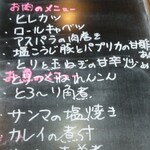 お肉のメニュー
・ヒレカツ
・ロールキャベツ
・アスパラの肉巻き
・塩こうじ豚とパプリカの甘酢
・とりと玉ねぎの甘辛炒
れんこん
・とろ〜り角煮
・サンマの塩焼き
・カレイの煮付